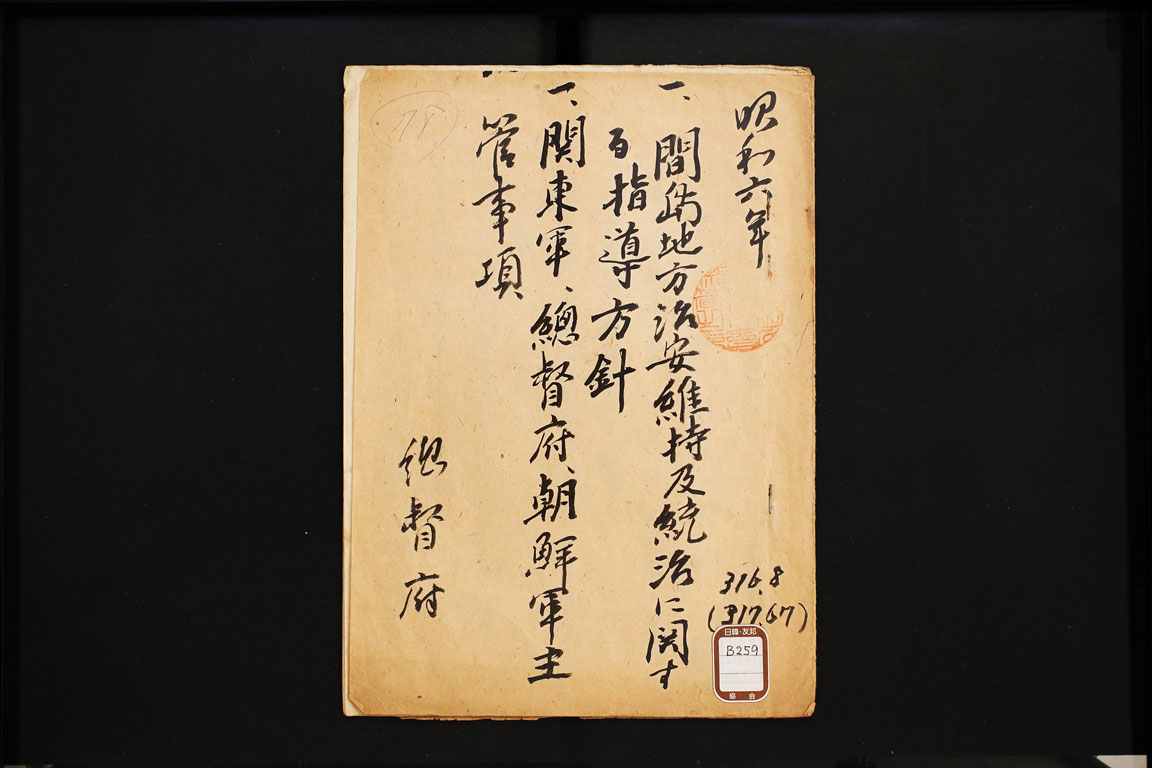 昭和六年
一、間島地方治安維持及統治に関す
る指導方針
一、関東軍、總督府、朝鮮軍主
管事項
總督府
78
316.8
(317.67)
日韓・友邦
B259
協会